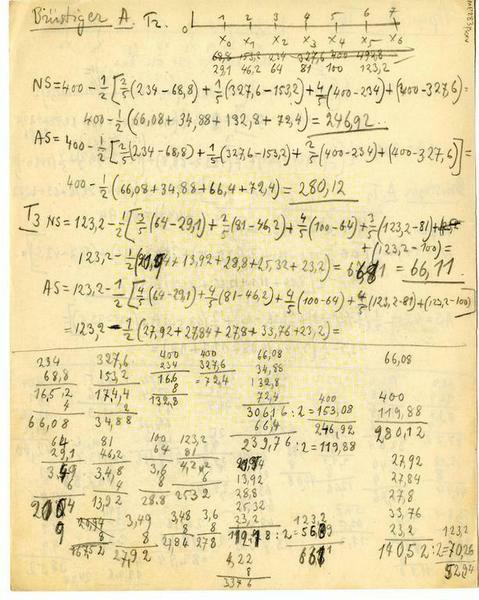 Brüstiger A. T2. 0 1 2 3 4 5 6 7
x0 x1 x2 x3 x4 x5 x6
68,8 153,2 234 327,6 400 492,8
29,1 46,2 64 81 100 123,2
NS=400-1/2[2/5(234-68,8)+1/5(327,6-153,2)+4/5(400-234)+(400-327,6)=
400-1/2(66,08+34,88+132,8+72,4)=246,92..
AS=400-1/2[2/5(234-68,8)+1/5(327,6-153,2)+2/5(400-234)+(400-327,6)]=
400-1/2(66,08+34,88+66,4+72,4)=280,12
T3 NS=123,2-1/2[3/5(64-29,1)+2/5(81-46,2)+4/5(100-64)+3/5(123,2-81)+
+(123,2-100)=
+13,92+28,8+25,32+23,2)= =66,11.
AS=123,2-1/2[4/5(64-29,1)+4/5(81-46,2)+4/5(100-64)+4/5(123,2-81)+(123,2-100)]
=123,2-1/2(27,92+27,84+27,8+33,76+23,2)=
234 327,6 400 400 66,08 66,08
68,8 153,2 234 327,6 34,88
16,5,2 174,4 166 =72,4 132,8
4 2 8 72,4 400 400
66,08 34,88 132,8 306,16:2=153,08 119,88
66,4 246,92 280,12
64 81 100 123,2 239,76:2=119,88
29,1 46,2 64 81 27,92
3,4,8 3,6 13,92 27,84
4 8 6 28,8 27,8
13,92 28.8 25,32 33,76
3,49 3,48 3,6 23,2 123,2 23,2 123,2
8 8 8 :2= 140,52:2=70,26
27,92 27,84 4,22 52,94
8
33,76